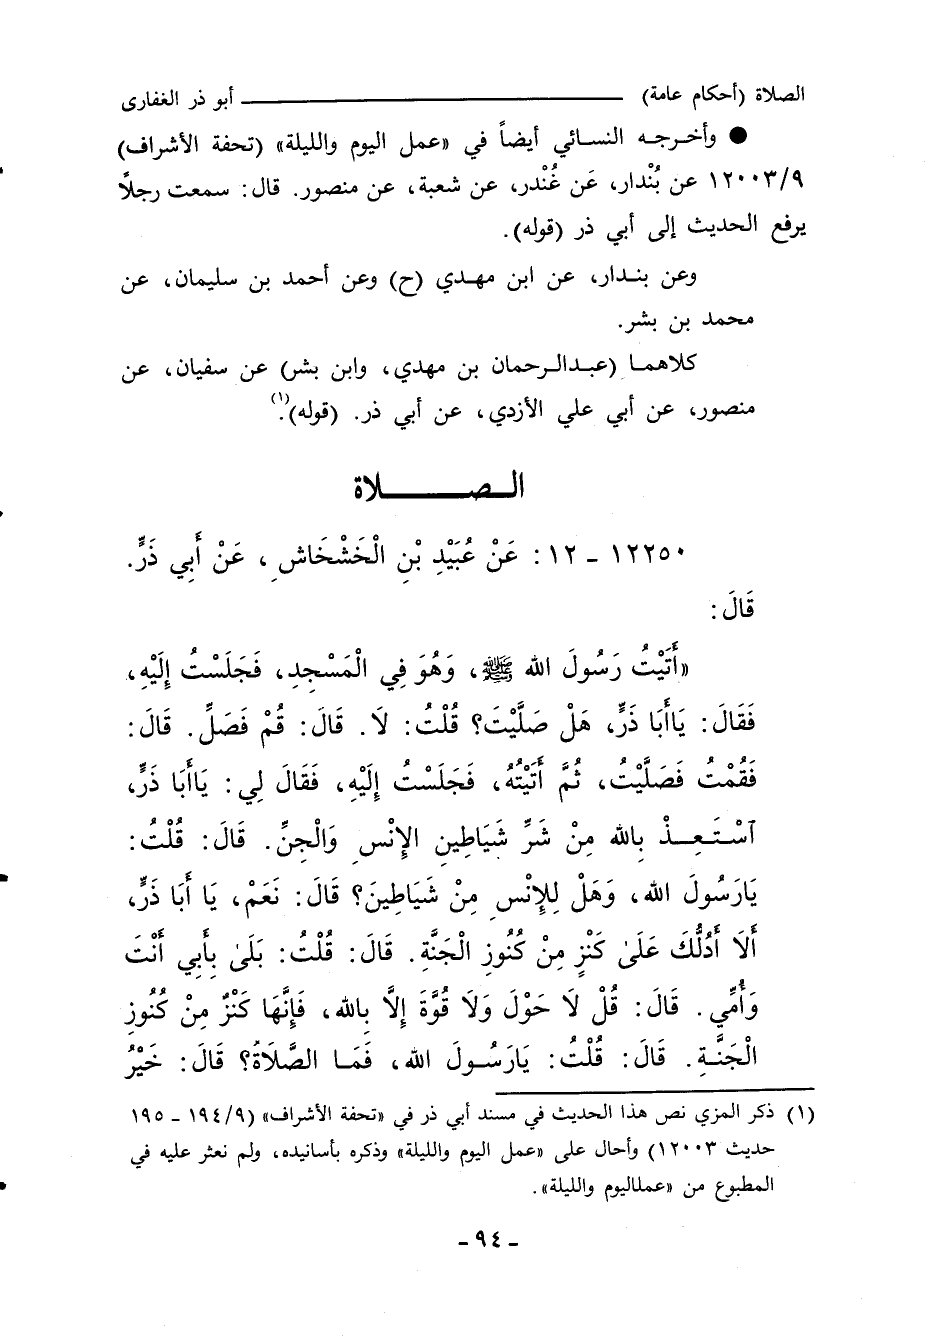 الصلاة (أحكام عامة) ــــــــــــــــــــ أبو ذر الغفارى
● وأخرجه النسائي أيضاً في «عمل اليوم والليلة» (تحفة الأشراف)
١٢٠٠٣/٩ عن بُنْدار، عَن غُنْدر، عن شعبة، عن منصور. قال: سمعت رجلاً
يرفع الحديث إلى أبي ذر (قوله).
وعن بندار، عن ابن مهدي (ح) وعن أحمد بن سليمان، عن
محمد بن بشر.
كلاهما (عبدالرحمان بن مهدي، وابن بشر) عن سفيان، عن
منصور، عن أبي علي الأزدي، عن أبي ذر. (قوله).(١)
الصـــــلاة
١٢٢٥٠ - ١٢: عَنْ عُبَيْدِ بْنِ الْخَشْخَاشِ، عَنْ أَبِي ذَرٍّ.
قَالَ:
«أَتَيْتُ رَسُولَ الله ﷺ، وَهُوَ فِي الْمَسْجِدِ، فَجَلَسْتُ إِلَيْهِ،
فَقَالَ: يَاأَبَا ذَرٍّ، هَلْ صَلَّيْتَ؟ قُلْتُ: لَا. قَالَ: قُمْ فَصَلِّ. قَالَ:
فَقُمْتُ فَصَلَّيْتُ، ثُمَّ أَتَيْتُهُ، فَجَلَسْتُ إِلَيْهِ، فَقَالَ لِي: يَاأَبَا ذَرٍّ،
آسْتَعِذْ بِالله مِنْ شَرِّ شَيَاطِينِ الإِنْسِ وَالْجِنِّ. قَالَ: قُلْتُ:
يَارَسُولَ الله، وَهَلْ لِلإِنْسِ مِنْ شَيَاطِينَ؟ قَالَ: نَعَمْ، يَا أَبَا ذَرٍّ،
أَلَا أَدُلُّكَ عَلَىٰ كَنْزٍ مِنْ كُنُوزِ الْجَنَّةِ. قَالَ: قُلْتُ: بَلَىٰ بِأَبِي أَنْتَ
وَأُمِّي. قَالَ: قُلْ لَا حَوْلَ وَلَا قُوَّةَ إِلَّا بِالله، فَإِنَّهَا كَنْزٌ مِنْ كُنُوزِ
الْجَنَّةِ. قَالَ: قُلْتُ: يَارَسُولَ الله، فَمَا الصَّلَاةُ؟ قَالَ: خَيْرُ
(١) ذكر المزي نص هذا الحديث في مسند أبي ذر في «تحفة الأشراف» (١٩٤/٩ - ١٩٥
حديث ١٢٠٠٣) وأحال على «عمل اليوم والليلة» وذكره بأسانيده، ولم نعثر عليه في
المطبوع من «عملاليوم والليلة».
- ٩٤ -